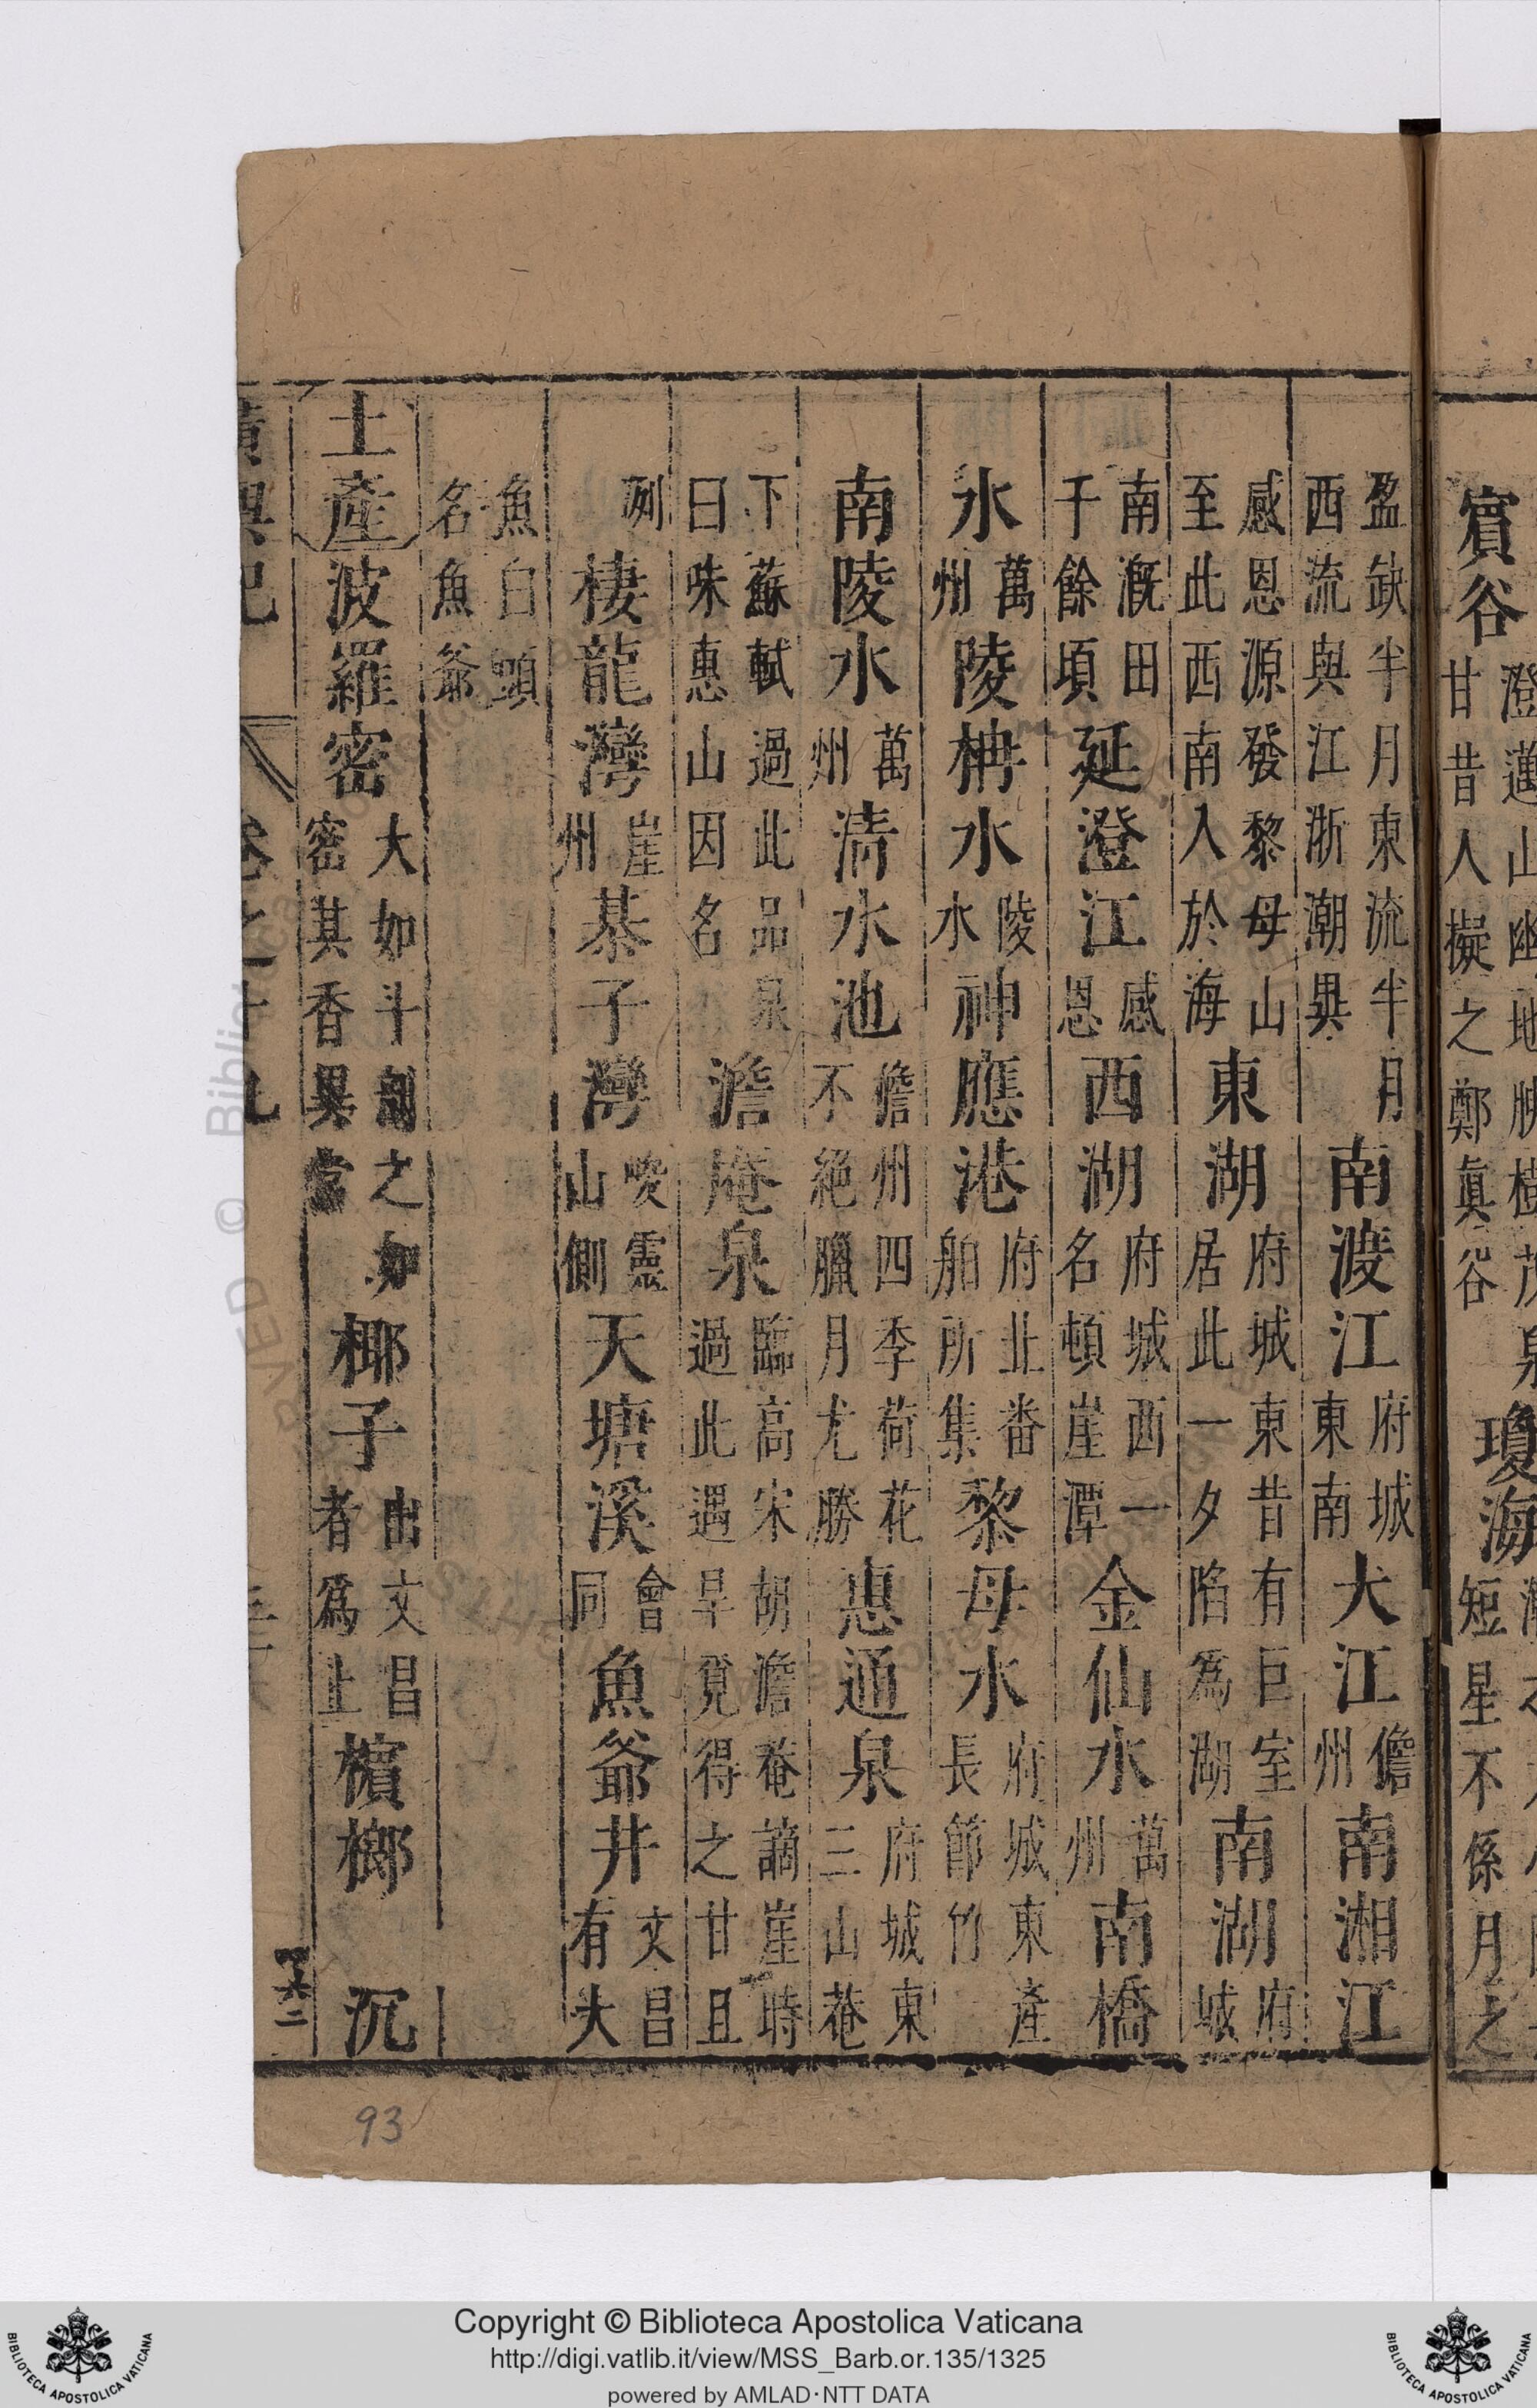 賔谷
澄邁山幽地腴樹茂泉
甘昔人擬之鄭真谷
瓊海
短星不係月之
盈缺半月東流半月
西流與江浙潮異
南渡江
府城
東南
大江
儋州
南湘江
感恩源發黎母山
至此西南入於海
東湖
府城東昔有巨室
居此一夕陷為湖
南湖
府城
南溉田
千餘頃
延澄江
感恩
西湖
府城西一
名頓崖潭
金仙水
萬州
南橋
水
萬州
陵柟水
陵水
神應港
府北番
舶所集
黎母水
府城東產
長節竹
南陵水
萬州
清水池
儋州四季荷花
不絕臘月尤勝
惠通泉
府城東
三山菴
下蘇軾過此品泉
曰味惠山因名
澹庵泉
臨高宋胡澹菴謫崖時
過此遇旱覓得之甘且
冽
棲龍灣
崖州
棊子灣
峻靈
山側
天塘溪
會同
魚爺井
文昌
有大
魚白頭
名魚爺
土產
波羅密
大如斗剖之如
密其香異常
椰子
出文昌
者為上
檳榔
沉
廣輿記
卷之十九
93
Copyright © Biblioteca Apostolica Vaticana
http://digi.vatlib.it/view/MSS_Barb.or.135/1325
powered by AMLAD·NTT DATA
BIBLIOTECA APOSTOLICA VATICANA
BIBLIOTECA APOSTOLICA VATICANA